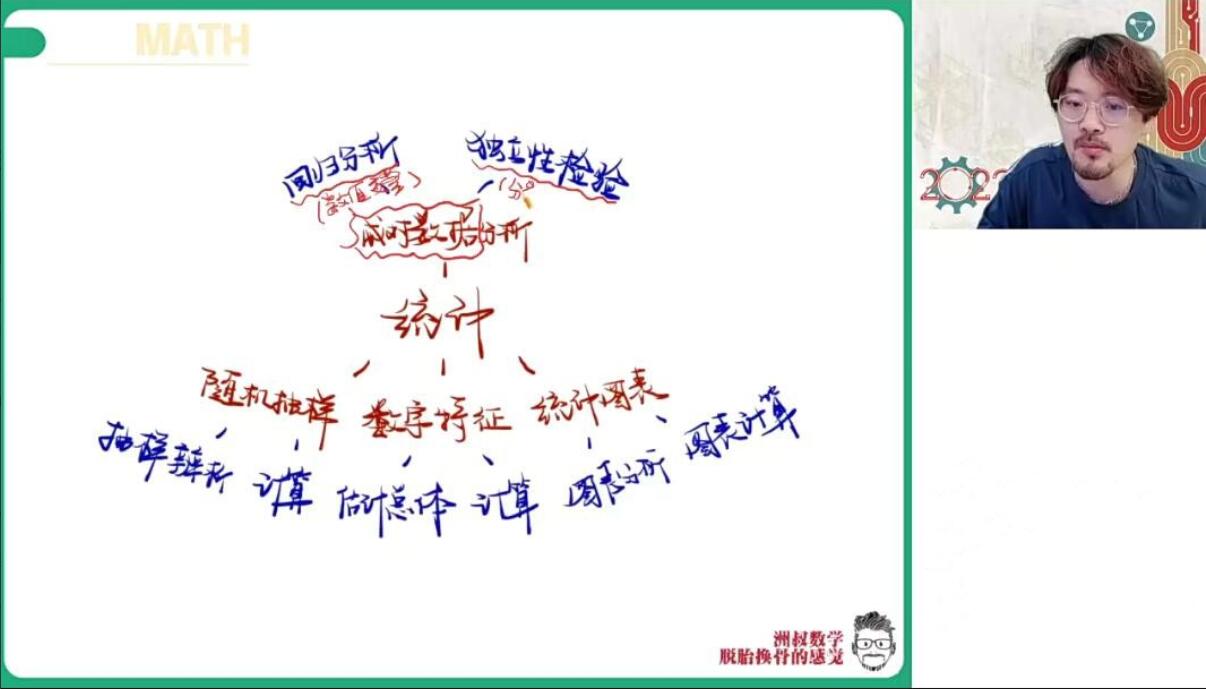 MATH
回归分析
独立性检验
(数值变量)
(分
成对数据分析
统计
随机抽样 数字特征 统计图表
抽样辨析 计算 估计总体 计算 图表分析 图表计算
洲叔数学
脱胎换骨的感觉